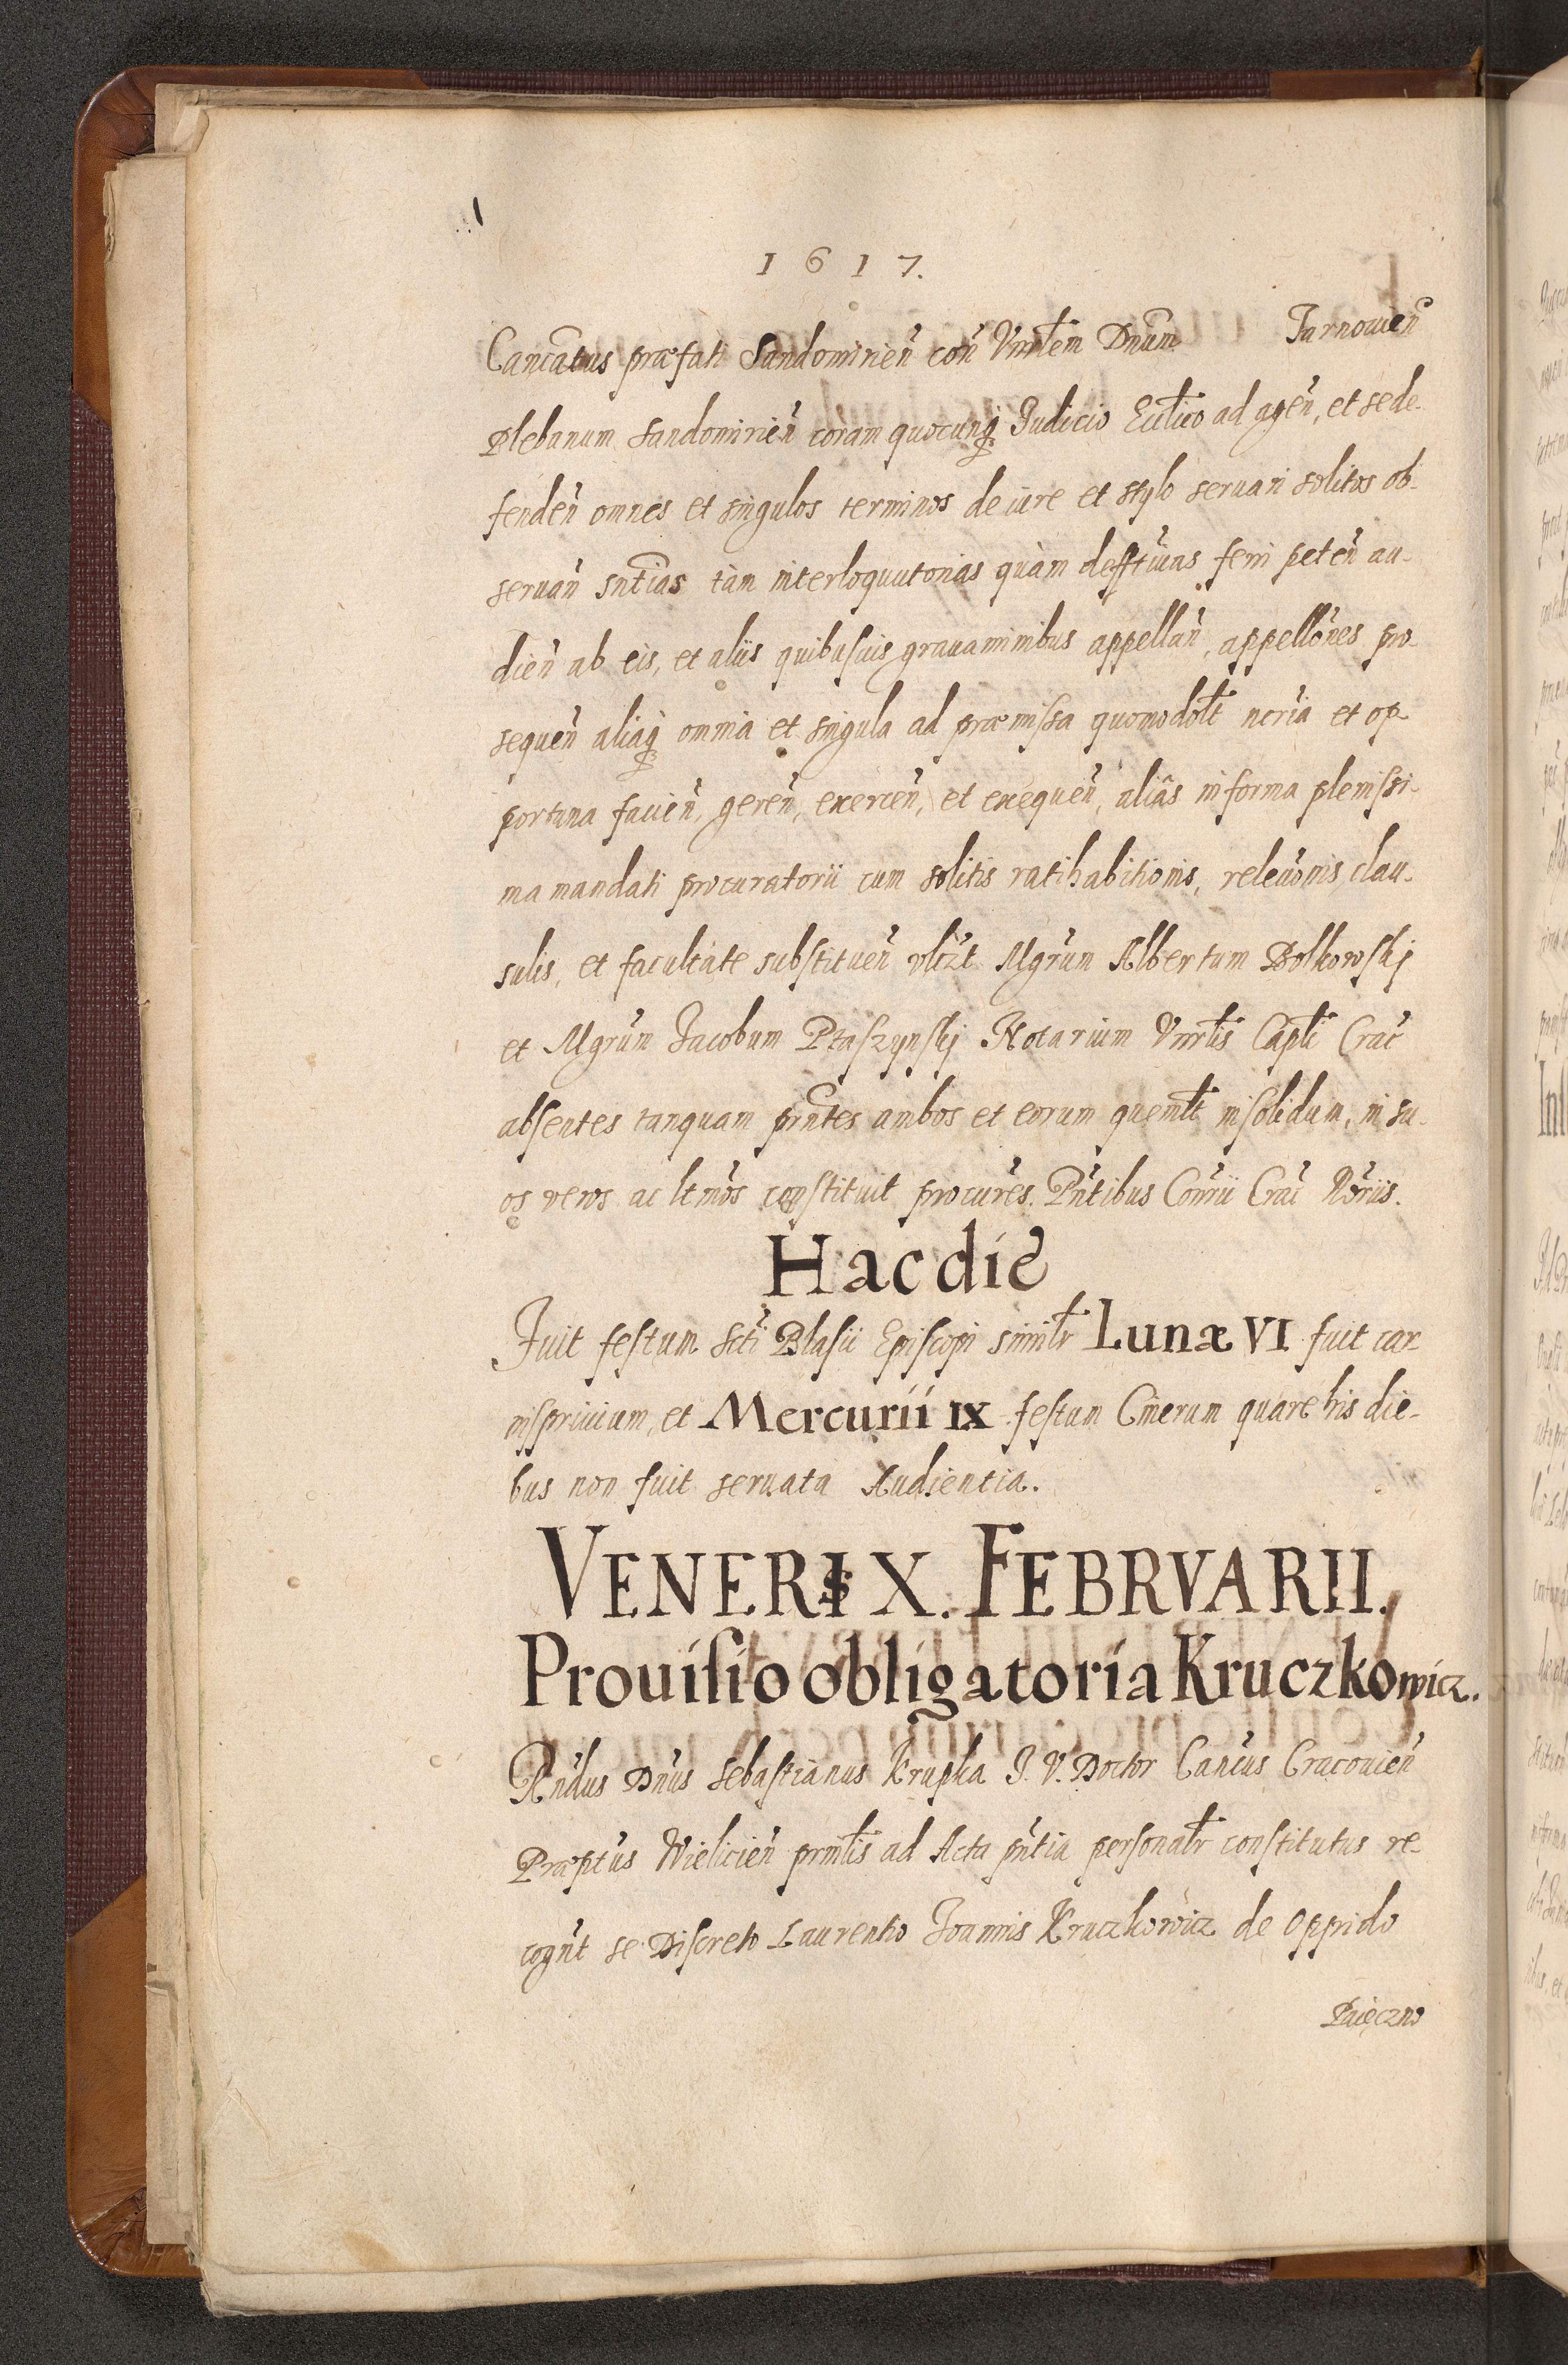 1617.
Canc̃atus præfati Sandomirieñ coñ Vnrl̃em Dnũm Tarnouieñ
Plebanum Sandomirieñ coram quocunq; Iudicio Eccl̃ico ad ageñ, et se de-
fendeñ omnes et singulos terminos de iure et stylo seruari solitos ob-
seruañ sñtias tàm interloquutorias quàm defft̃iuas ferri peteñ au-
dieñ ab eis, et aliis quibusuis grauaminibus appellañ, appellõnes pro-
sequeñ aliaq; omnia et singula ad præmissa quomodol̃t ncr̃ia et op-
portuna facieñ, gereñ, exerceñ, et exequeñ, aliâs in forma plenissi-
ma mandati procuratorii cum solitis ratihabitionis, releuõnis clau-
sulis, et facultate substitueñ vlcz̃t Mgrũm Albertum Bolkowskj
et Mgrũm Jacobum Ptaszynskj Notarium Vnrl̃is Capl̃i Crac̃
absentes tanquam prñtes ambos et eorum queml̃t insolidum, in su-
os veros ac ltmõs constituit procurẽs. Pñtibus Conr̃ii Crac̃ Nõriis.
Hac die
Fuit festum Sct̃i Blasii Episcopi simil̃r Lunæ VI fuit car-
nispriuium, et Mercurii IX festum Cinerum quare his die-
bus non fuit seruata Audientia.
VENERIS X. FEBRVARII.
Prouisio obligatoria Kruczkowicz.
Rñdus Dñus Sebastianus Krupka I. V. Doctor Canc̃us Cracouieñ
Præpt̃us Wielicieñ prñlis ad Acta pñtia personal̃r constitutus re-
cogñt se Discreto Laurentio Joannis Kruczkowicz de Oppido
Paięczno